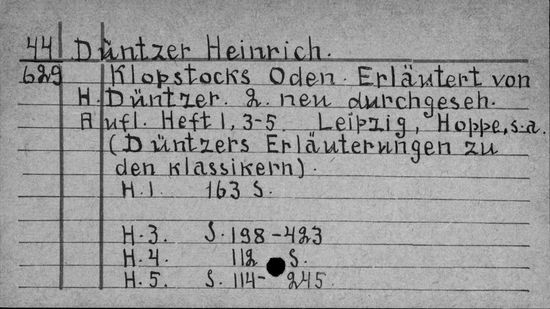 44 Düntzer Heinrich.
629 Klopstocks Oden. Erläutert von
H. Düntzer. 2. neu durchgeseh.
Aufl. Heft 1, 3-5. Leipzig, Hoppe, s.a.
(Düntzers Erläuterungen zu
den klassikern).
H. 1. 163 S.
H. 3. S. 198-423
H. 4. 112 S.
H. 5. S. 114-245.